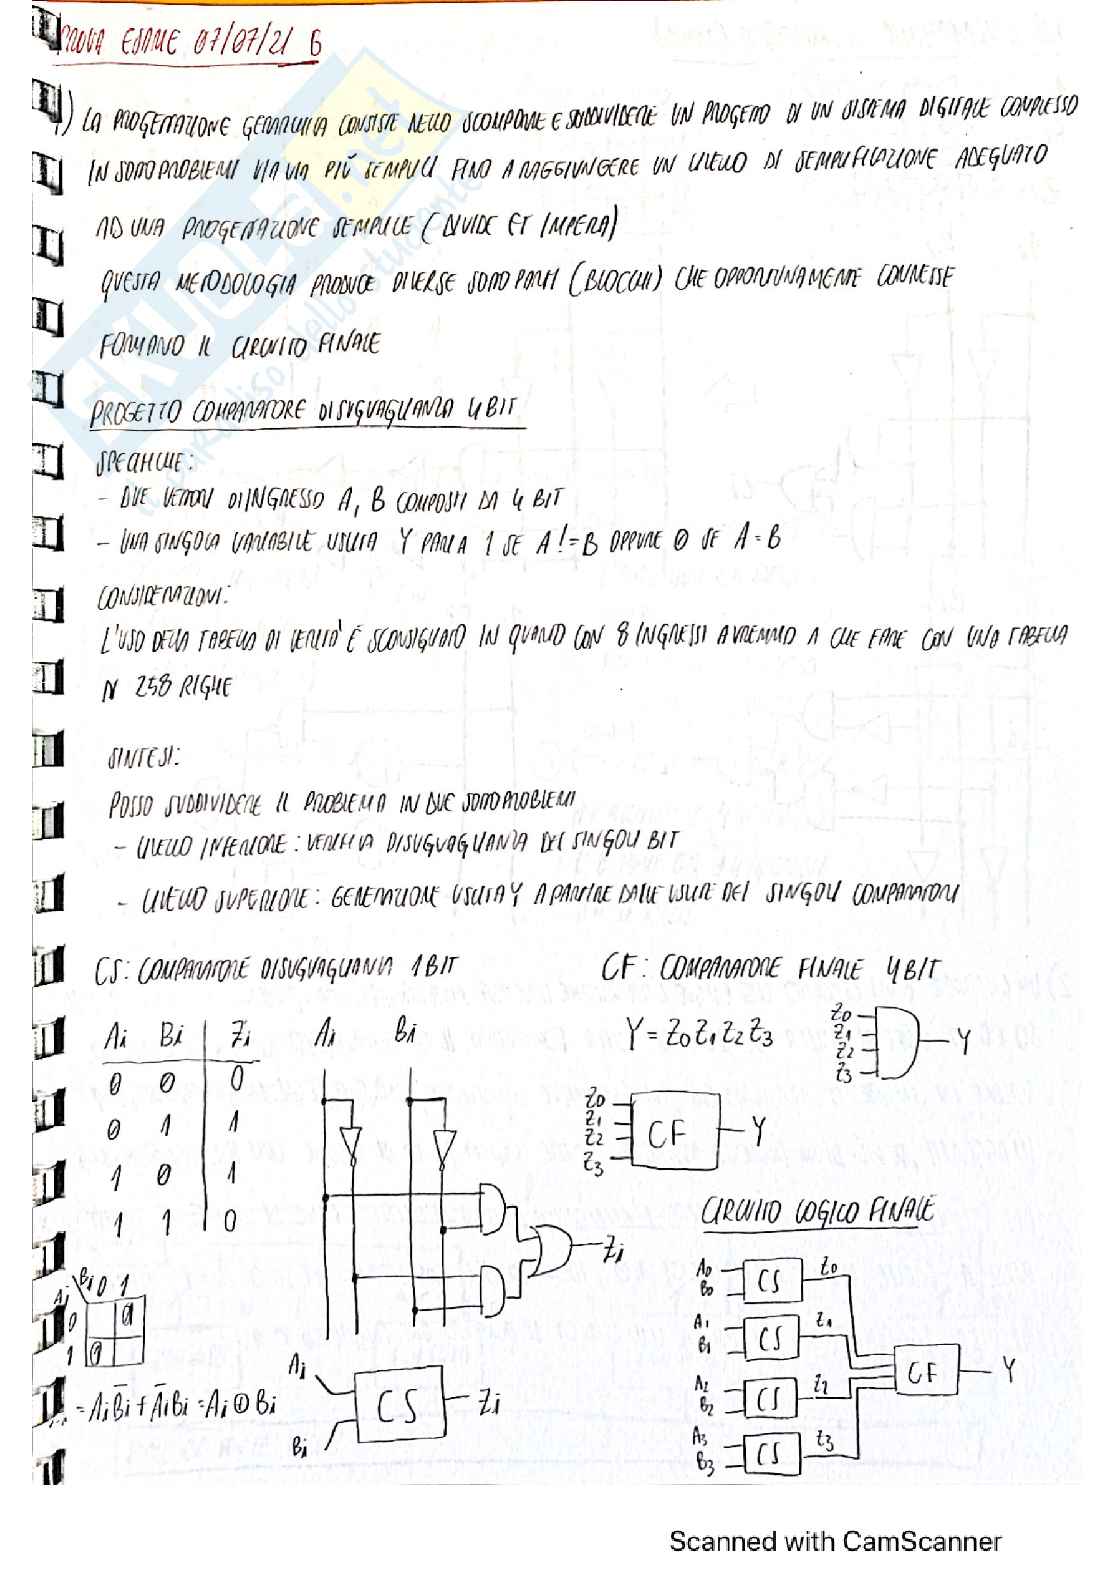 PROVA ESAME 07/07/21 B
1) LA PROGETTAZIONE GERARCHICA CONSISTE NELLO SCOMPORRE E SUDDIVIDERE UN PROGETTO DI UN SISTEMA DIGITALE COMPLESSO
IN SOTTOPROBLEMI VIA VIA PIÙ SEMPLICI FINO A RAGGIUNGERE UN LIVELLO DI SEMPLIFICAZIONE ADEGUATO
AD UNA PROGETTAZIONE SEMPLICE (DIVIDE ET IMPERA)
QUESTA METODOLOGIA PRODUCE DIVERSE SOTTOPARTI (BLOCCHI) CHE OPPORTUNAMENTE CONNESSE
FORMANO IL CIRCUITO FINALE
PROGETTO COMPARATORE DISUGUAGLIANZA 4 BIT
SPECIFICHE:
- DUE VETTORI DI INGRESSO A, B COMPOSTI DA 4 BIT
- UNA SINGOLA VARIABILE USCITA Y PARI A 1 SE A != B OPPURE 0 SE A = B
CONSIDERAZIONI:
L'USO DELLA TABELLA DI VERITÀ È SCONSIGLIATO IN QUANTO CON 8 INGRESSI AVREMMO A CHE FARE CON UNA TABELLA
DI 258 RIGHE
SINTESI:
POSSO SUDDIVIDERE IL PROBLEMA IN DUE SOTTOPROBLEMI
- LIVELLO INFERIORE: VERIFICA DISUGUAGLIANZA DEI SINGOLI BIT
- LIVELLO SUPERIORE: GENERAZIONE USCITA Y A PARTIRE DALLE USCITE DEI SINGOLI COMPARATORI
CS: COMPARATORE DISUGUAGLIANZA 1 BIT
Ai Bi Zi
0 0 0
0 1 1
1 0 1
1 1 0
Ai Bi
Zi
Bi 0 1
Ai
0 0
1 0
= AiB̄i + ĀiBi = Ai ⊕ Bi
Ai
Bi
CS
Zi
CF: COMPARATORE FINALE 4 BIT
Y = Z0 Z1 Z2 Z3
Z0
Z1
Z2
Z3
Y
Z0
Z1
Z2
Z3
CF
Y
CIRCUITO LOGICO FINALE
A0
B0
CS
Z0
A1
B1
CS
Z1
A2
B2
CS
Z2
A3
B3
CS
Z3
CF
Y
SKUOLA.net
il paradiso dello studente
Scanned with CamScanner